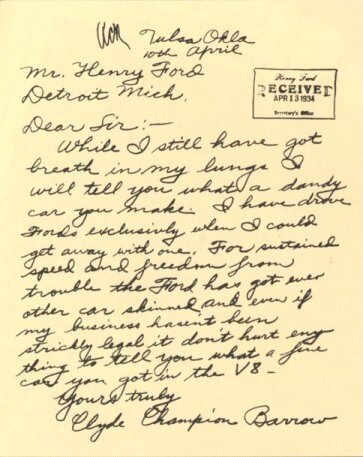 Tulsa Okla
10th April
Mr. Henry Ford
Detroit Mich.
Henry Ford
RECEIVED
APR 13 1934
Secretary's Office
Dear Sir:—
While I still have got
breath in my lungs I
will tell you what a dandy
car you make. I have drove
Fords exclusivly when I could
get away with one. For sustained
speed and freedom from
trouble the Ford has got ever
other car skinned and even if
my business hasen't been
strickly legal it don't hurt eny
thing to tell you what a fine
car you got in the V8 —
Yours truly
Clyde Champion Barrow